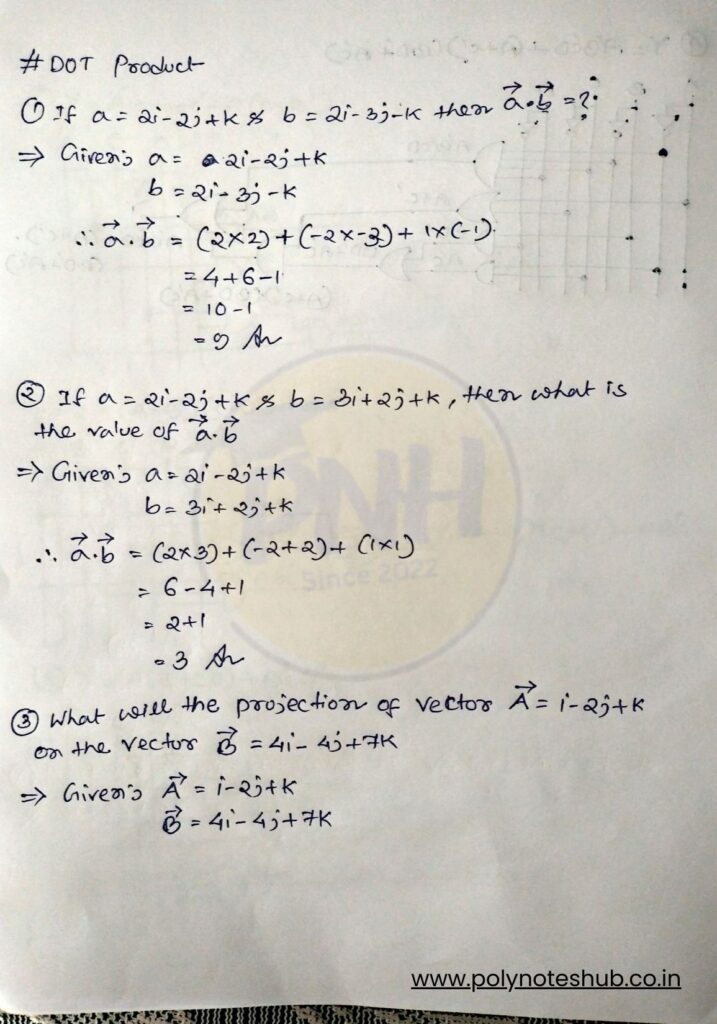 # DOT Product
① If a = 2i - 2j + k & b = 2i - 3j - k then a⃗.b⃗ = ?
⇒ Given's a = 2i - 2j + k
b = 2i - 3j - k
∴ a⃗.b⃗ = (2×2) + (-2×-3) + 1×(-1)
= 4 + 6 - 1
= 10 - 1
= 9 An
② If a = 2i - 2j + k & b = 3i + 2j + k, then what is
the value of a⃗.b⃗
⇒ Given's a = 2i - 2j + k
b = 3i + 2j + k
∴ a⃗.b⃗ = (2×3) + (-2+2) + (1×1)
= 6 - 4 + 1
= 2 + 1
= 3 An
PNH
Since 2022
③ What will the projection of vector A⃗ = i - 2j + k
on the vector B⃗ = 4i - 4j + 7k
⇒ Given's A⃗ = i - 2j + k
B⃗ = 4i - 4j + 7k
www.polynoteshub.co.in